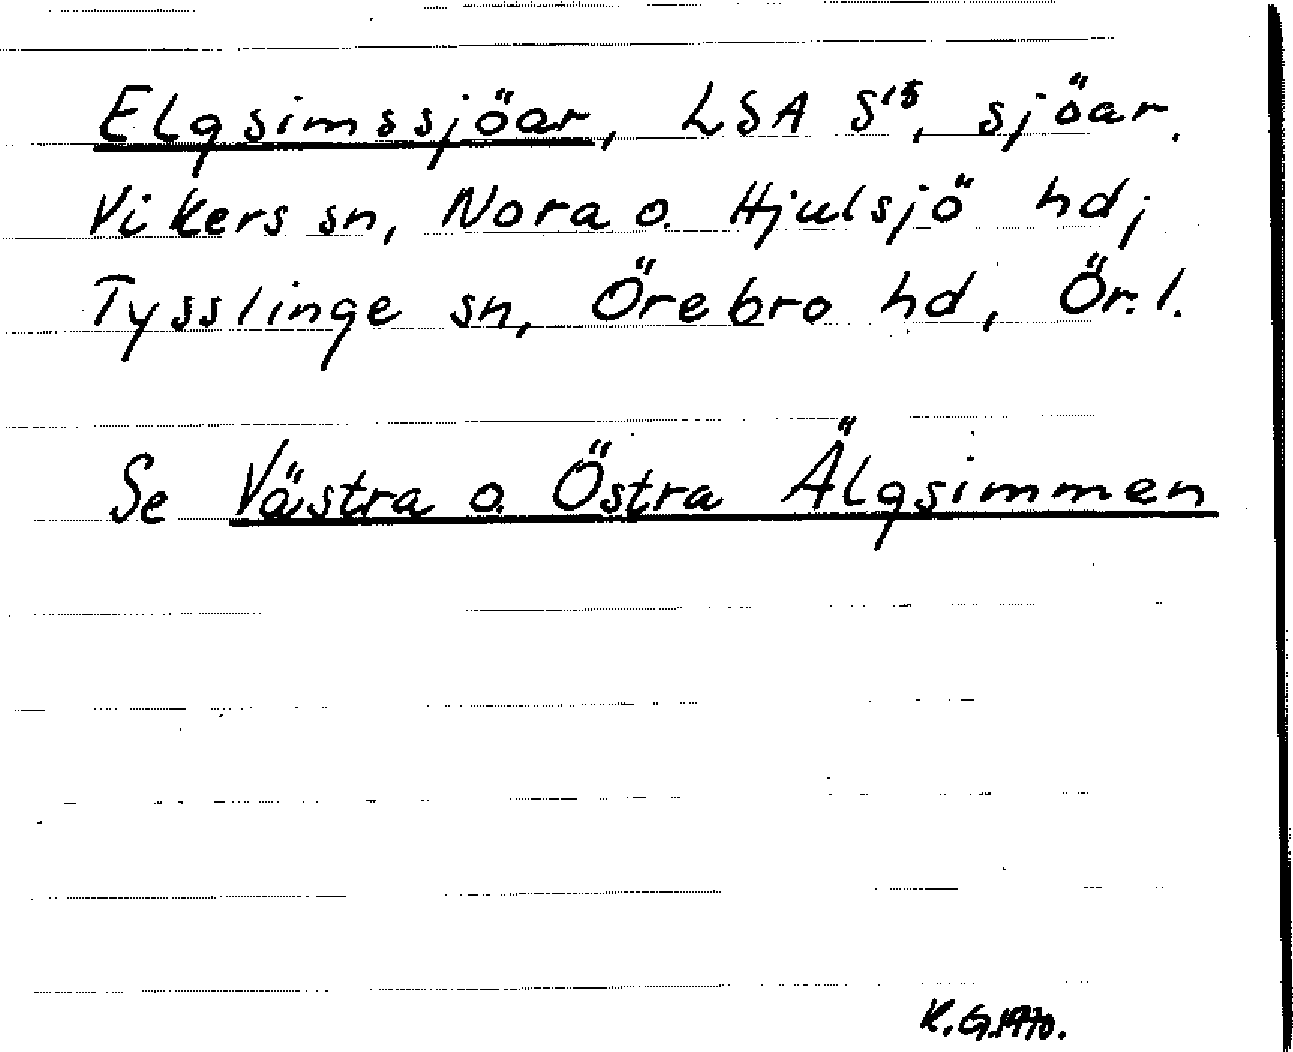 Elgsimssjöar, LSA S¹⁵, sjöar.
Vikers sn, Nora o. Hjulsjö hd;
Tysslinge sn, Örebro hd, Ör. l.
Se Västra o. Östra Älgsimmen
K.G. 1970.